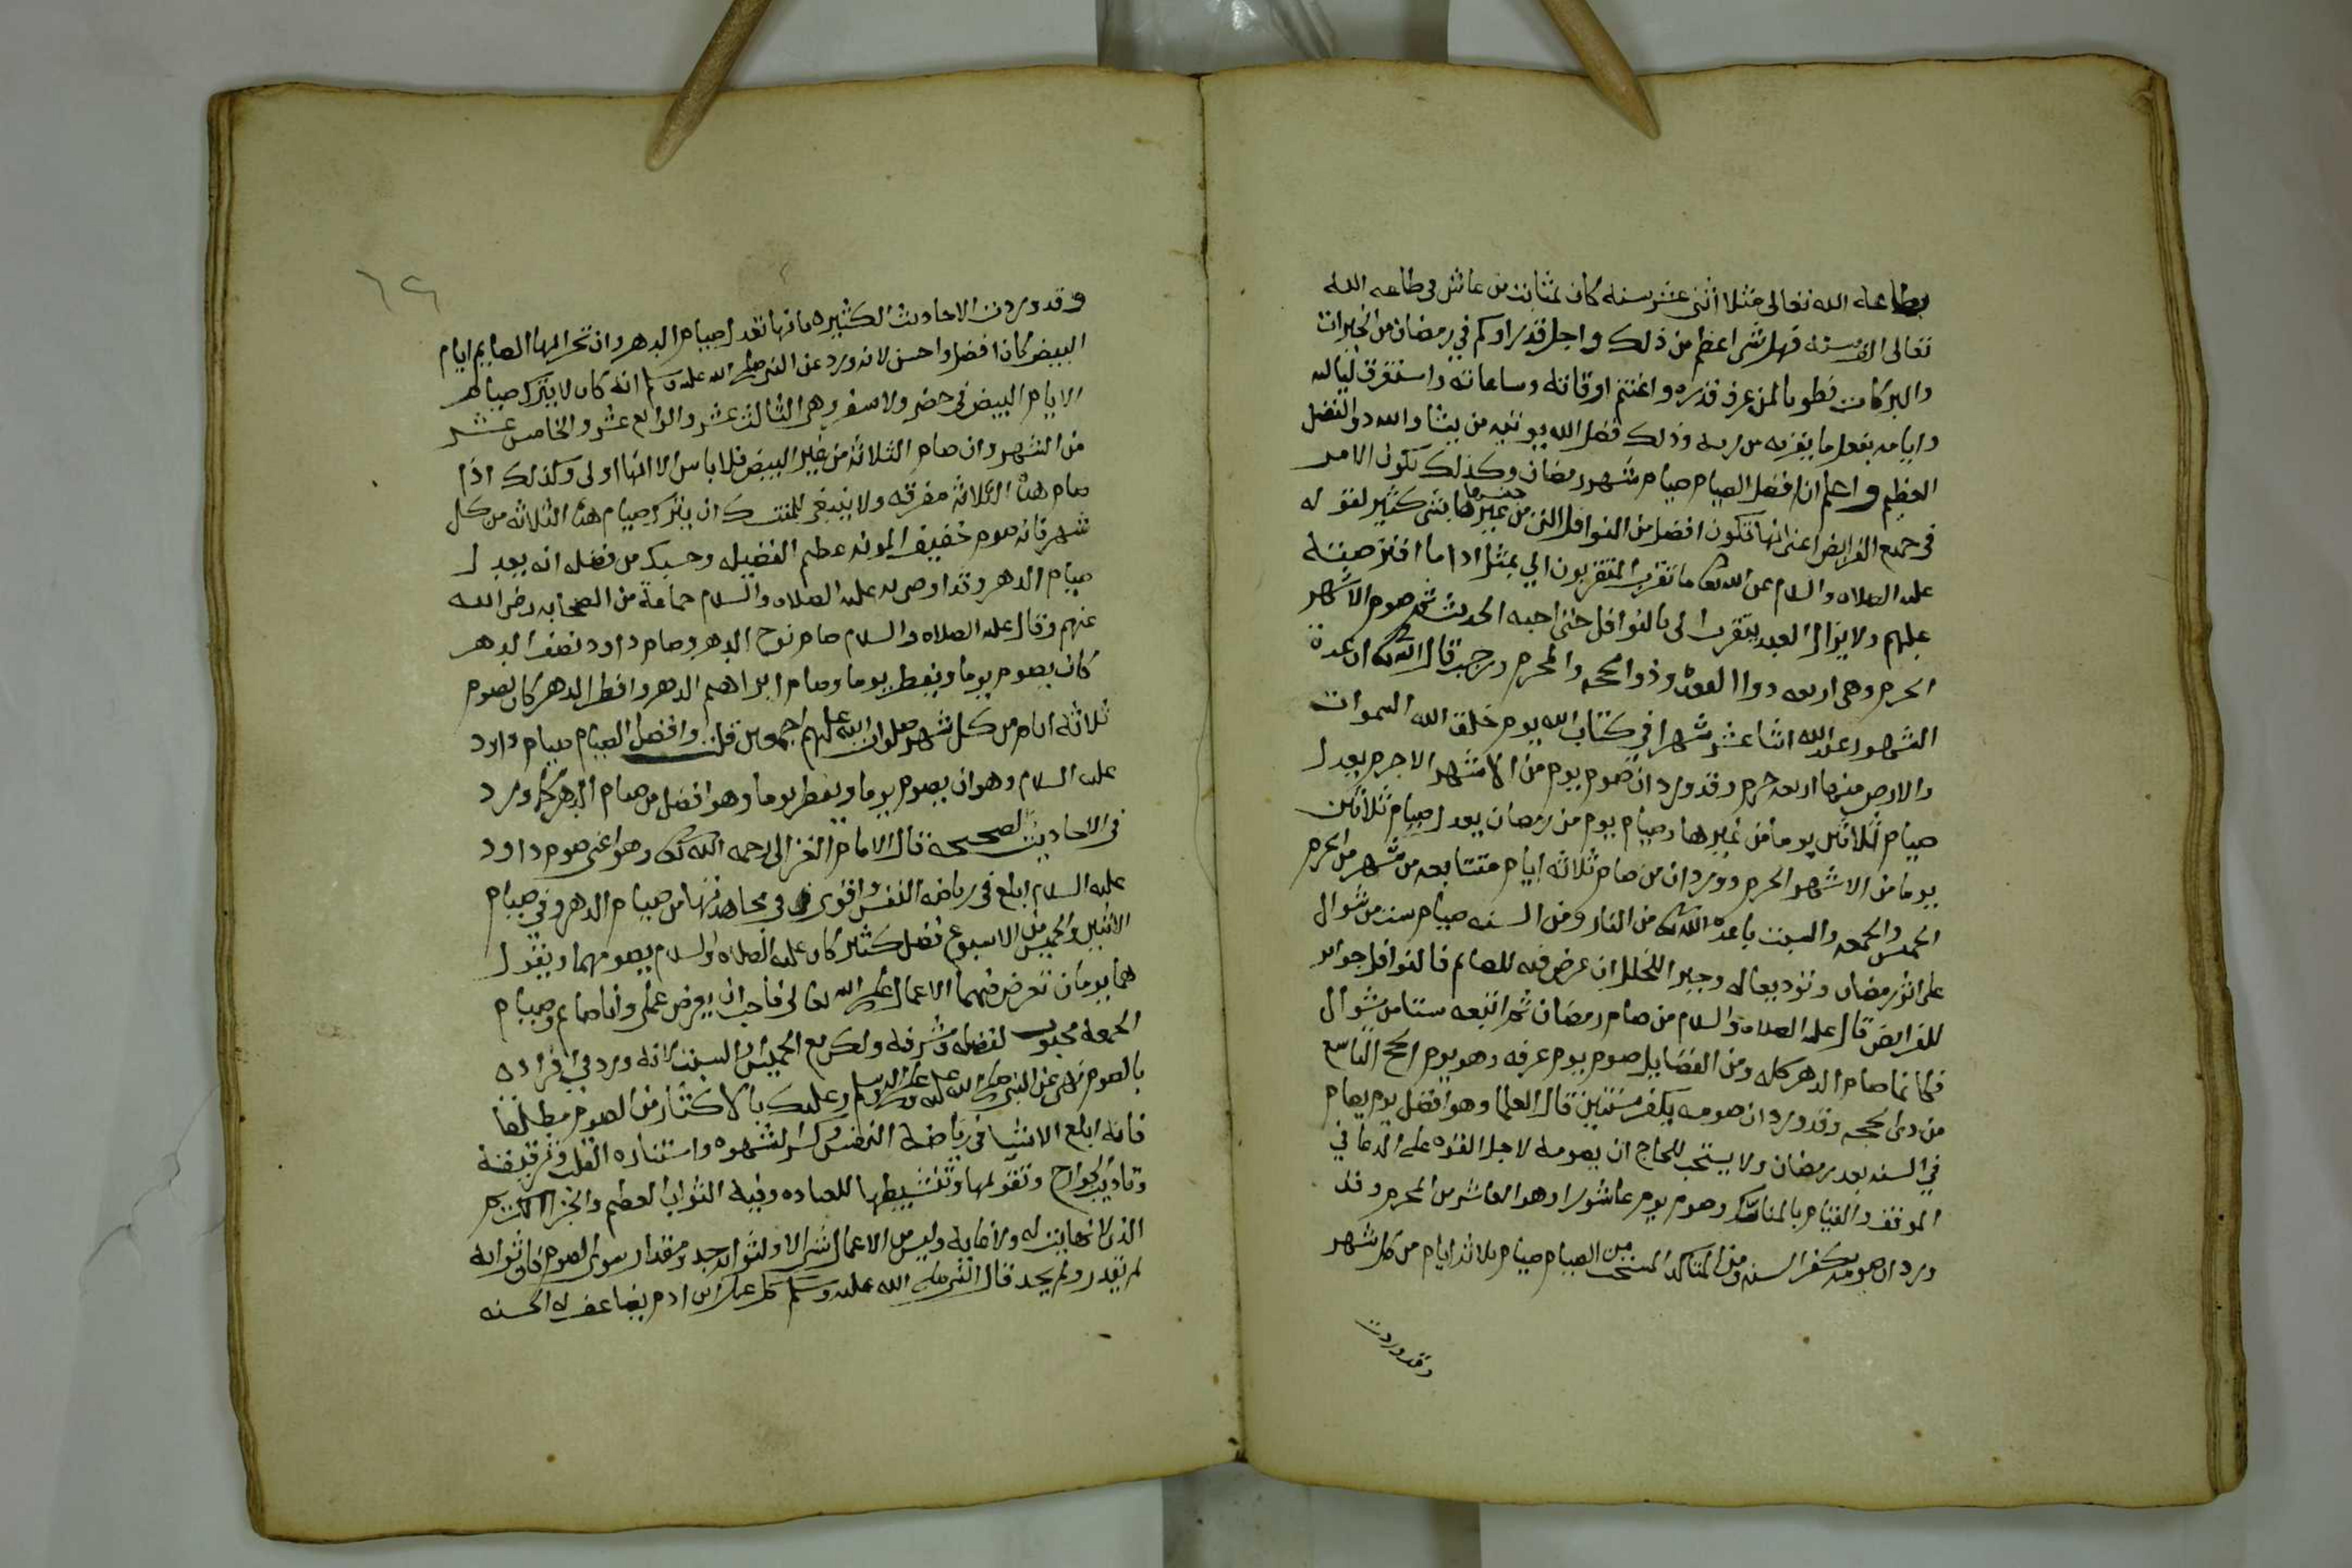 بطاعة الله تعالى مثلا اثنى عشر سنه كان بمثابت من عاش فى طاعه الله
تعالى الف سنه فهل شى اعظم من ذلك واجل قدرا وكم في رمضان من الخيرات
والبركات فطوبا لمن عرف قدره واغتنم اوقاته وساعاته واستغرق لياليه
وايامه بفعل ما يقربه من ربه وذلك فضل الله يوتيه من يشا والله ذو الفضل
العظيم واعلم ان افضل الصيام صيام شهر رمضان وكذلك تكون الامر
فى جميع الفرايض اعنى انها تكون افضل من النوافل التى من جنسها بشى كثير لقوله
عليه الصلاه والسلام عن الله تعالى ما تقرب المتقربون الي بمثل ادا ما افترضته
عليهم ولا يزال العبد يتقرب الى بالنوافل حتى احبه الحديث ثم صوم الاشهر
الحرم وهى اربعه ذوا القعده وذوا الحجه والمحرم ورجب قال الله تعالى ان عدة
الشهور عند الله اثنا عشر شهرا في كتاب الله يوم خلق الله السموات
والارض منها اربعه حرم وقد ورد ان صوم يوم من الاشهر الاحرم يعدل
صيام ثلاثين يوما من غيرها وصيام يوم من رمضان يعدل صيام ثلاثين
يوما من الاشهر الحرم وورد ان من صام ثلاثه ايام متتابعه من شهر من الحرم
الخميس والجمعه والسبت باعده الله تعالى من النار ومن السنه صيام ست من شوال
على اثر رمضان وتوديعا له وجبرا للخلل ان عرض فيه للصايم فالنوافل جوابر
للفرايض قال عليه الصلاة والسلام من صام رمضان ثم اتبعه ستا من شوال
فكانما صام الدهر كله ومن الفضايل صوم يوم عرفه وهو يوم الحج التاسع
من ذى الحجه وقد ورد ان صومه يكفر سنتين قال العلما وهو افضل يوم يصام
في السنه بعد رمضان ولا يستحب للحاج ان يصومه لاجل القوه على الدعا في
الموقف والقيام بالمناسك وصوم يوم عاشورا وهو العاشر من المحرم وقد
ورد ان صومه يكفر السنه ومن المتاكد المستحب من الصيام صيام ثلاثه ايام من كل شهر
وقد وردت
١٢٦
وقد وردت الاحاديث الكثيره بانها تعدل صيام الدهر وان تحرا لها الصايم ايام
البيض كان افضل واحسن لانه ورد عن النبى صلى الله عليه وسلم انه كان لا يترك صيام
الايام البيض فى حضر ولا سفر وهى الثالث عشر والرابع عشر والخامس عشر
من الشهر وان صام الثلاثه من غير البيض فلا باس الا انها اولى وكذلك اذا
صام هذه الثلاثه مفرقه ولا ينبغى للمتنسك ان يترك صيام هذه الثلاثه من كل
شهر فانه صوم خفيف المونه عظيم الفضيله وحسبك من فضله انه يعدل
صيام الدهر وقد اوصى به عليه الصلاه والسلام جماعة من الصحابه رضى الله
عنهم وقال عليه الصلاه والسلام صام نوح الدهر وصام داود نصف الدهر
كان يصوم يوما ويفطر يوما وصام ابراهيم الدهر وافطر الدهر كان يصوم
ثلاثه ايام من كل شهر صلوات الله عليهم اجمعين قلت وافضل الصيام صيام داود
عليه السلام وهو ان يصوم يوما ويفطر يوما وهو افضل من صيام الدهر كما ورد
فى الاحاديث الصحيحه قال الامام الغزالى رحمه الله تعالى وهو اعنى صوم داود
عليه السلام ابلغ فى رياضه النفس واقوى في مجاهدتها من صيام الدهر وفي صيام
الاثنين والخميس من الاسبوع فضل كثير كان عليه الصلاه والسلام يصومهما ويقول
هما يومان تعرض فيهما الاعمال على الله تعالى فاحب ان يعرض عملى وانا صايم وصيام
الجمعه محبوب لفضله وشرفه ولكن مع الخميس او السبت لانه ورد في افراده
بالصوم نهى عن النبى صلى الله عليه وعلى اله وسلم وعليك بالاكثار من الصوم مطلقا
فانه ابلغ الاشيا فى رياضة النفس وكسر الشهوه واستناره القلب وترقيقة
وتاديب الجوارح وتقويمها وتنشيطها للعباده وفيه الثواب العظيم والجزا الاكرم
الذى لا نهايت له ولا غايه وليس من الاعمال شى الا ولثوابه حد ومقدار سوى الصوم فان ثوابه
لم يقدر ولم يحد قال النبى صلى الله عليه وسلم كل عمل ابن ادم يضاعف له الحسنه